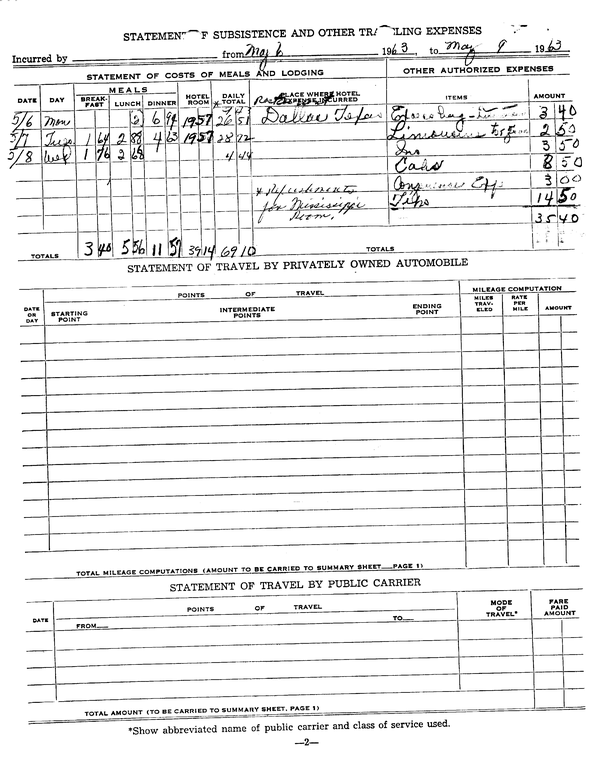 STATEMENT OF SUBSISTENCE AND OTHER TRAVELING EXPENSES
Incurred by from May 6 1963, to May 9 1963
STATEMENT OF COSTS OF MEALS AND LODGING OTHER AUTHORIZED EXPENSES
DATE DAY MEALS BREAK-FAST LUNCH DINNER HOTEL ROOM DAILY TOTAL PLACE WHERE HOTEL EXPENSE INCURRED ITEMS AMOUNT
5/6 Mon 6 94 1957 26 51 Dallas Texas 3 40
5/7 Tues 1 64 2 88 4 63 1957 28 72 Limousine 2 50
5/8 Wed 1 76 2 68 4 44 3 50
Cabs 8 50
* Refreshments 3 00
for Mississippi Tips 14 50
Room. 35 40
TOTALS 3 40 5 56 11 57 39 14 69 10 TOTALS
STATEMENT OF TRAVEL BY PRIVATELY OWNED AUTOMOBILE
DATE OR DAY POINTS OF TRAVEL MILEAGE COMPUTATION
STARTING POINT INTERMEDIATE POINTS ENDING POINT MILES TRAV-ELED RATE PER MILE AMOUNT
TOTAL MILEAGE COMPUTATIONS (AMOUNT TO BE CARRIED TO SUMMARY SHEET PAGE 1)
STATEMENT OF TRAVEL BY PUBLIC CARRIER
DATE POINTS OF TRAVEL MODE OF TRAVEL* FARE PAID AMOUNT
FROM TO
TOTAL AMOUNT (TO BE CARRIED TO SUMMARY SHEET. PAGE 1)
*Show abbreviated name of public carrier and class of service used.
—2—